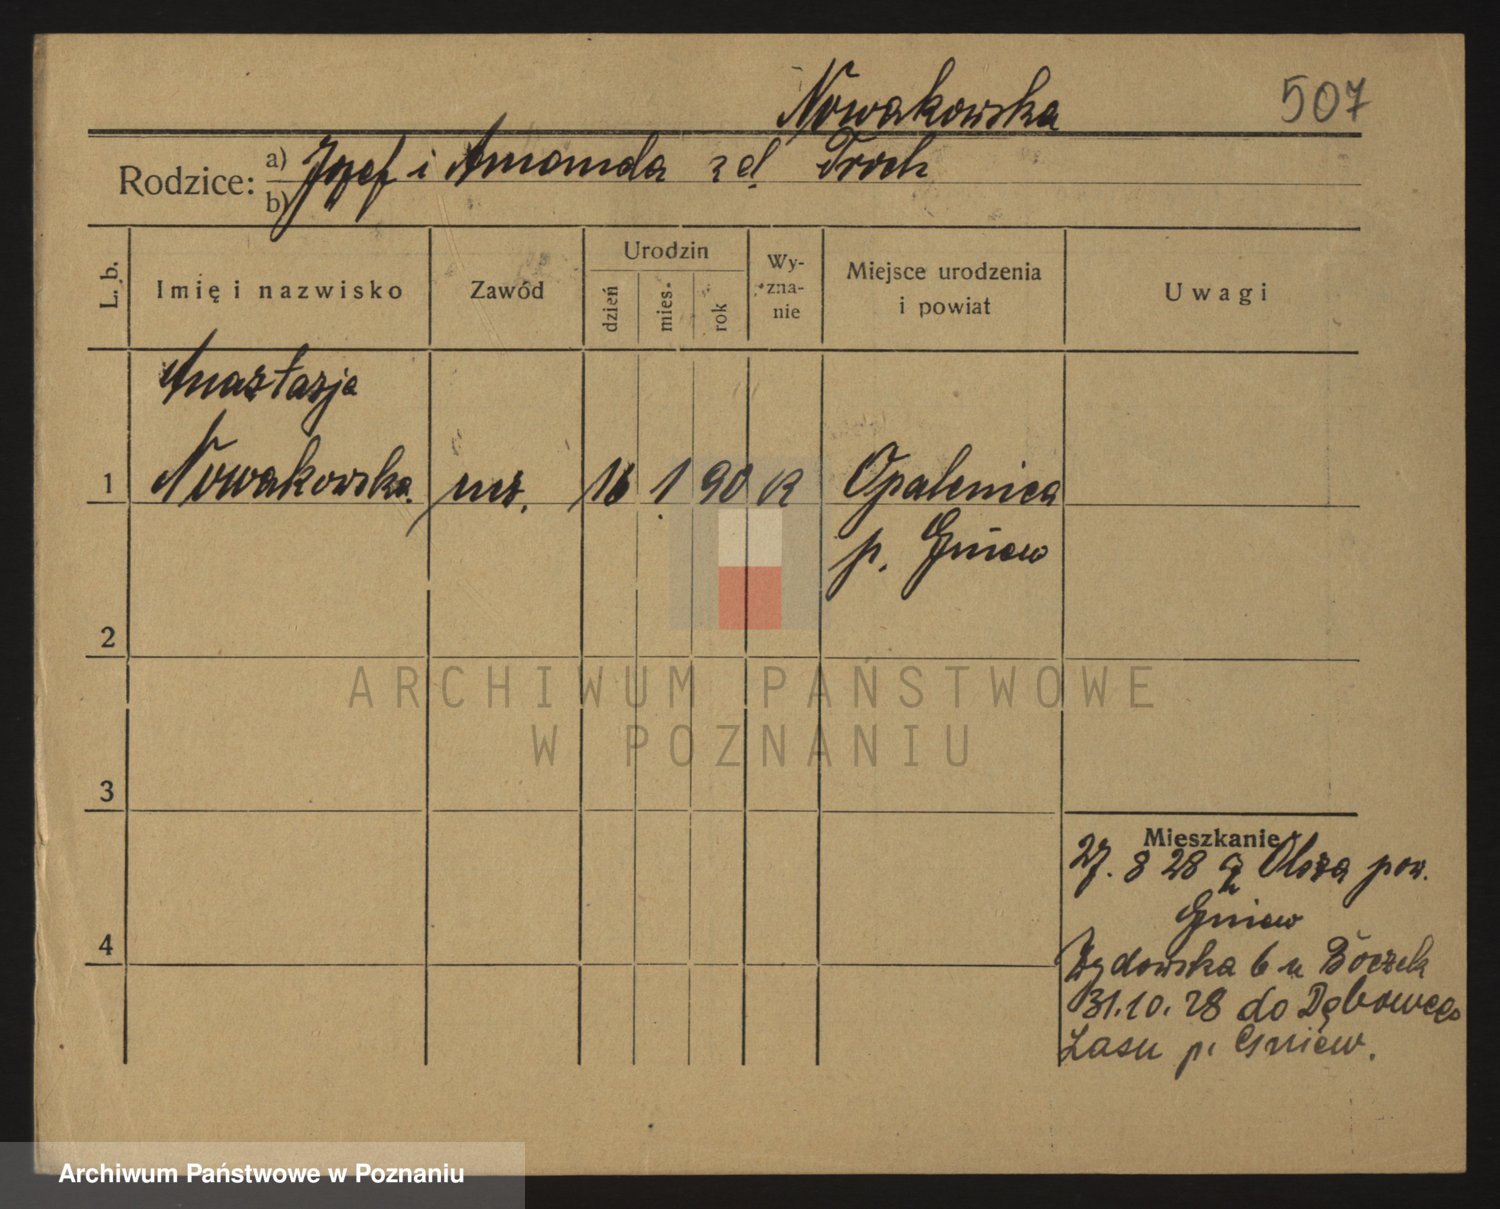 Nowakowska
507
Rodzice: a) Józef i Amanda z d. Troch
b)
L. b.
Imię i nazwisko
Zawód
Urodzin
dzień
mies.
rok
Wy-
zna-
nie
Miejsce urodzenia
i powiat
Uwagi
Anastazja
1 Nowakowska. 16 1. 90 R Opalenica
p. Gniew
2
ARCHIWUM PAŃSTWOWE
W POZNANIU
3
Mieszkanie
27. 8 28 z pow.
Gniew
4
Żydowska 6 u Boczek
31.10.28 do Dębowego
Lasu p. Gniew.
Archiwum Państwowe w Poznaniu